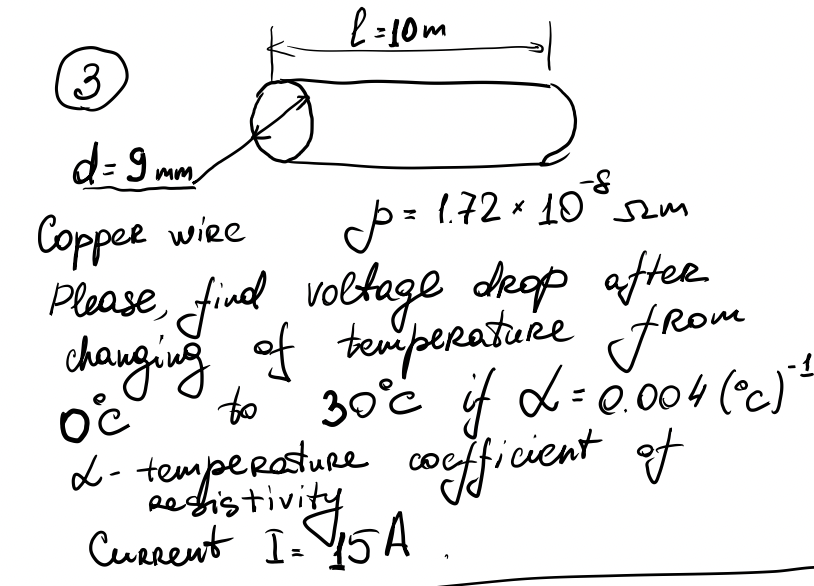 l=10m
3
d=9 mm
Copper wire ρ = 1.72 × 10⁻⁸ Ωm
Please, find voltage drop after
changing of temperature from
0°C to 30°C if α = 0.004 (°C)⁻¹
α - temperature coefficient of
resistivity
Current I = 15 A.